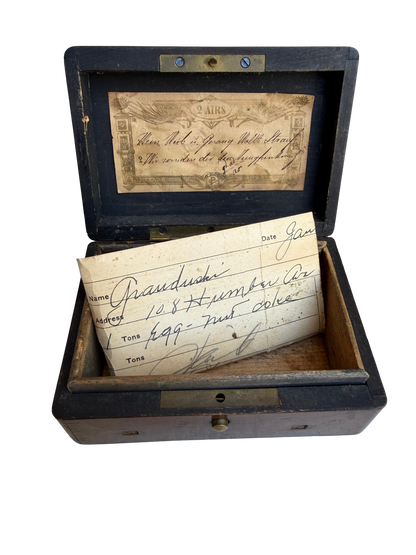 2 AIRS
Wein Weib u. Gesang Waltz Strauss
Date Jan
Name Granduski
Address 108 Humber Av
1 Tons Egg-Nut coke
Tons